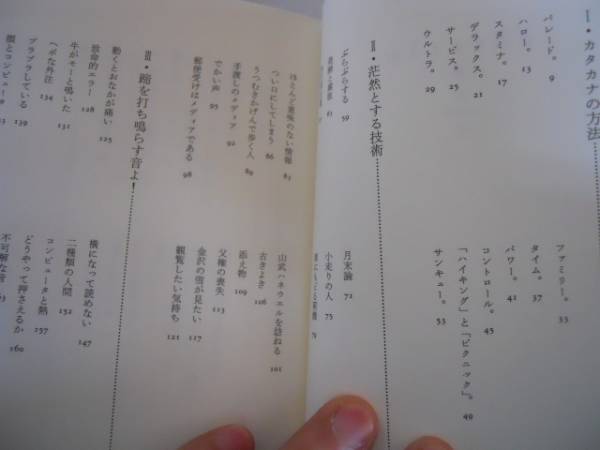 I・カタカナの方法
パレード。 9
ハロー。 13
スタミナ。 17
デラックス。 21
サービス。 25
ウルトラ。 29
ファミリー。 33
タイム。 37
パワー。 41
コントロール。 45
「ハイキング」と「ピクニック」。 49
サンキュー。 53
II・茫然とする技術
ぶらぶらする 59
月末論 72
小走りの人 75
ほとんど意味のない情報 83
ついロにしてしまう 86
うつむきかげんで歩く人 89
手渡しのメディア 92
でかい声 95
郵便受けはメディアである 98
山武ハネウエルを訪ねる 101
古きよき 106
添え物 109
父権の喪失 113
金沢の雪が見たい 117
観覧したい気持ち 121
III・蹄を打ち鳴らす音よ!
動くとおなかが痛い 125
致命的エラー 128
牛がモーと鳴いた 131
ヘボな外法 134
ブラブラしている 139
横になって読めない 147
二種類の人間 152
コンピュータと熱 157
どうやって押さえるか 160